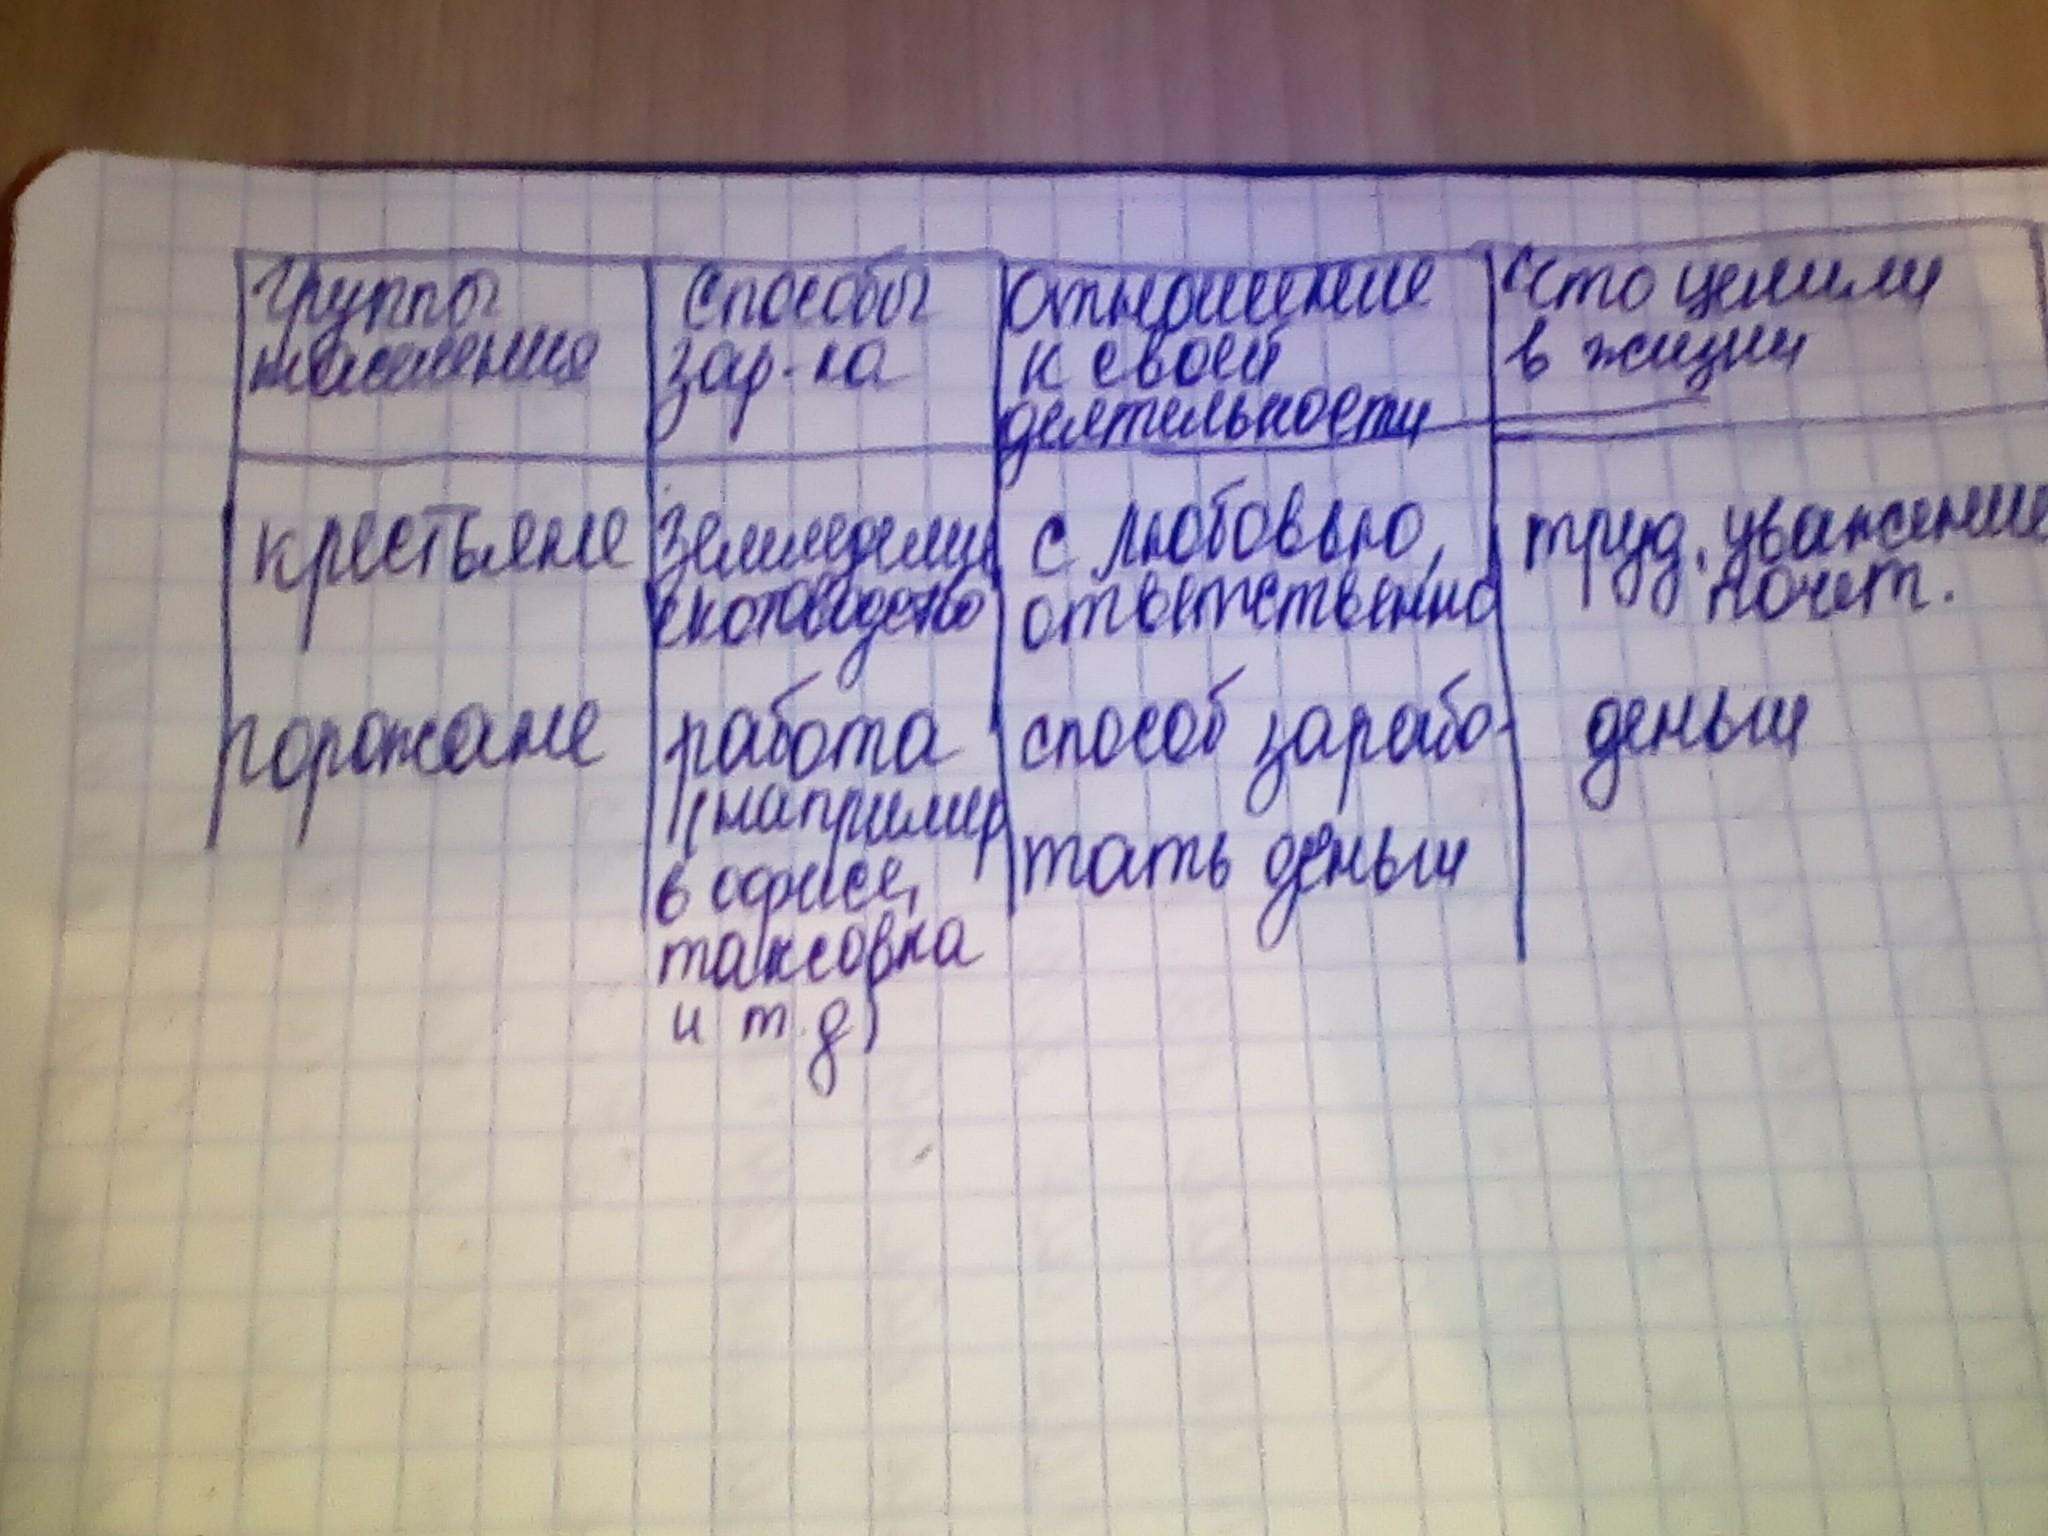 Группы
населения
Способы
зар-ка
Отношение
к своей
деятельности
Что ценили
в жизни
крестьяне
Земледелие
скотоводство
с любовью,
ответственно
труд, уважение
почет.
горожане
работа
(например
в офисе,
таксовка
и т.д)
способ зарабо-
тать деньги
деньги